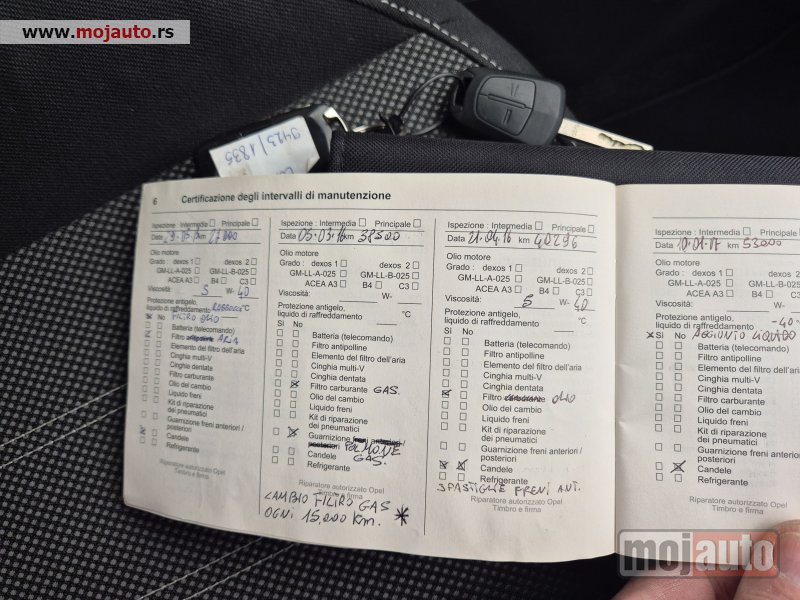 www.mojauto.rs
9423/1835
6 Certificazione degli intervalli di manutenzione
Ispezione : Intermedia Principale
Data km 27000
Olio motore
Grado : dexos 1 dexos 2
GM-LL-A-025 GM-LL-B-025
ACEA A3 B4 C3
Viscosità: 5 W- 40
Protezione antigelo,
liquido di raffreddamento °C
Sì No FILTRO OLIO
Batteria (telecomando)
Filtro ARIA
Elemento del filtro dell'aria
Cinghia multi-V
Cinghia dentata
Filtro carburante
Olio del cambio
Liquido freni
Kit di riparazione
dei pneumatici
Guarnizione freni anteriori /
posteriori
Candele
Refrigerante
Riparatore autorizzato Opel
Timbro e firma
Ispezione : Intermedia Principale
Data 05-03-16 km 38500
Olio motore
Grado : dexos 1 dexos 2
GM-LL-A-025 GM-LL-B-025
ACEA A3 B4 C3
Viscosità: W-
Protezione antigelo,
liquido di raffreddamento °C
Sì No
Batteria (telecomando)
Filtro antipolline
Elemento del filtro dell'aria
Cinghia multi-V
Cinghia dentata
Filtro carburante GAS.
Olio del cambio
Liquido freni
Kit di riparazione
dei pneumatici
Guarnizione freni anteriori/
posteriori POLMONE
Candele GAS.
Refrigerante
Riparatore autorizzato Opel
Timbro e firma
CAMBIO FILTRO GAS
OGNI 15,000 Km.
Ispezione : Intermedia Principale
Data 21.04.16 km 40296
Olio motore
Grado : dexos 1 dexos 2
GM-LL-A-025 GM-LL-B-025
ACEA A3 B4 C3
Viscosità: 5 W- 40
Protezione antigelo,
liquido di raffreddamento °C
Sì No
Batteria (telecomando)
Filtro antipolline
Elemento del filtro dell'aria
Cinghia multi-V
Cinghia dentata
Filtro carburante OLIO
Olio del cambio
Liquido freni
Kit di riparazione
dei pneumatici
Guarnizione freni anteriori /
posteriori
Candele
Refrigerante
SPASTIGLIE FRENI ANT.
Riparatore autorizzato Opel
Timbro e firma
Ispezione : Intermedia Principale
Data 10.01.17 km 53000
Olio motore
Grado : dexos 1
GM-LL-A-025 GM-LL-B-025
ACEA A3 B4 C3
Viscosità: W-
Protezione antigelo, -40
liquido di raffreddamento
Sì No AGGIUNTO LIQUIDO
Batteria (telecomando)
Filtro antipolline
Elemento del filtro dell'aria
Cinghia multi-V
Cinghia dentata
Filtro carburante
Olio del cambio
Liquido freni
Kit di riparazione
dei pneumatici
Guarnizione freni anteriori /
posteriori
Candele
Refrigerante
Riparatore autorizzato Opel
Timbro e firma
mojauto